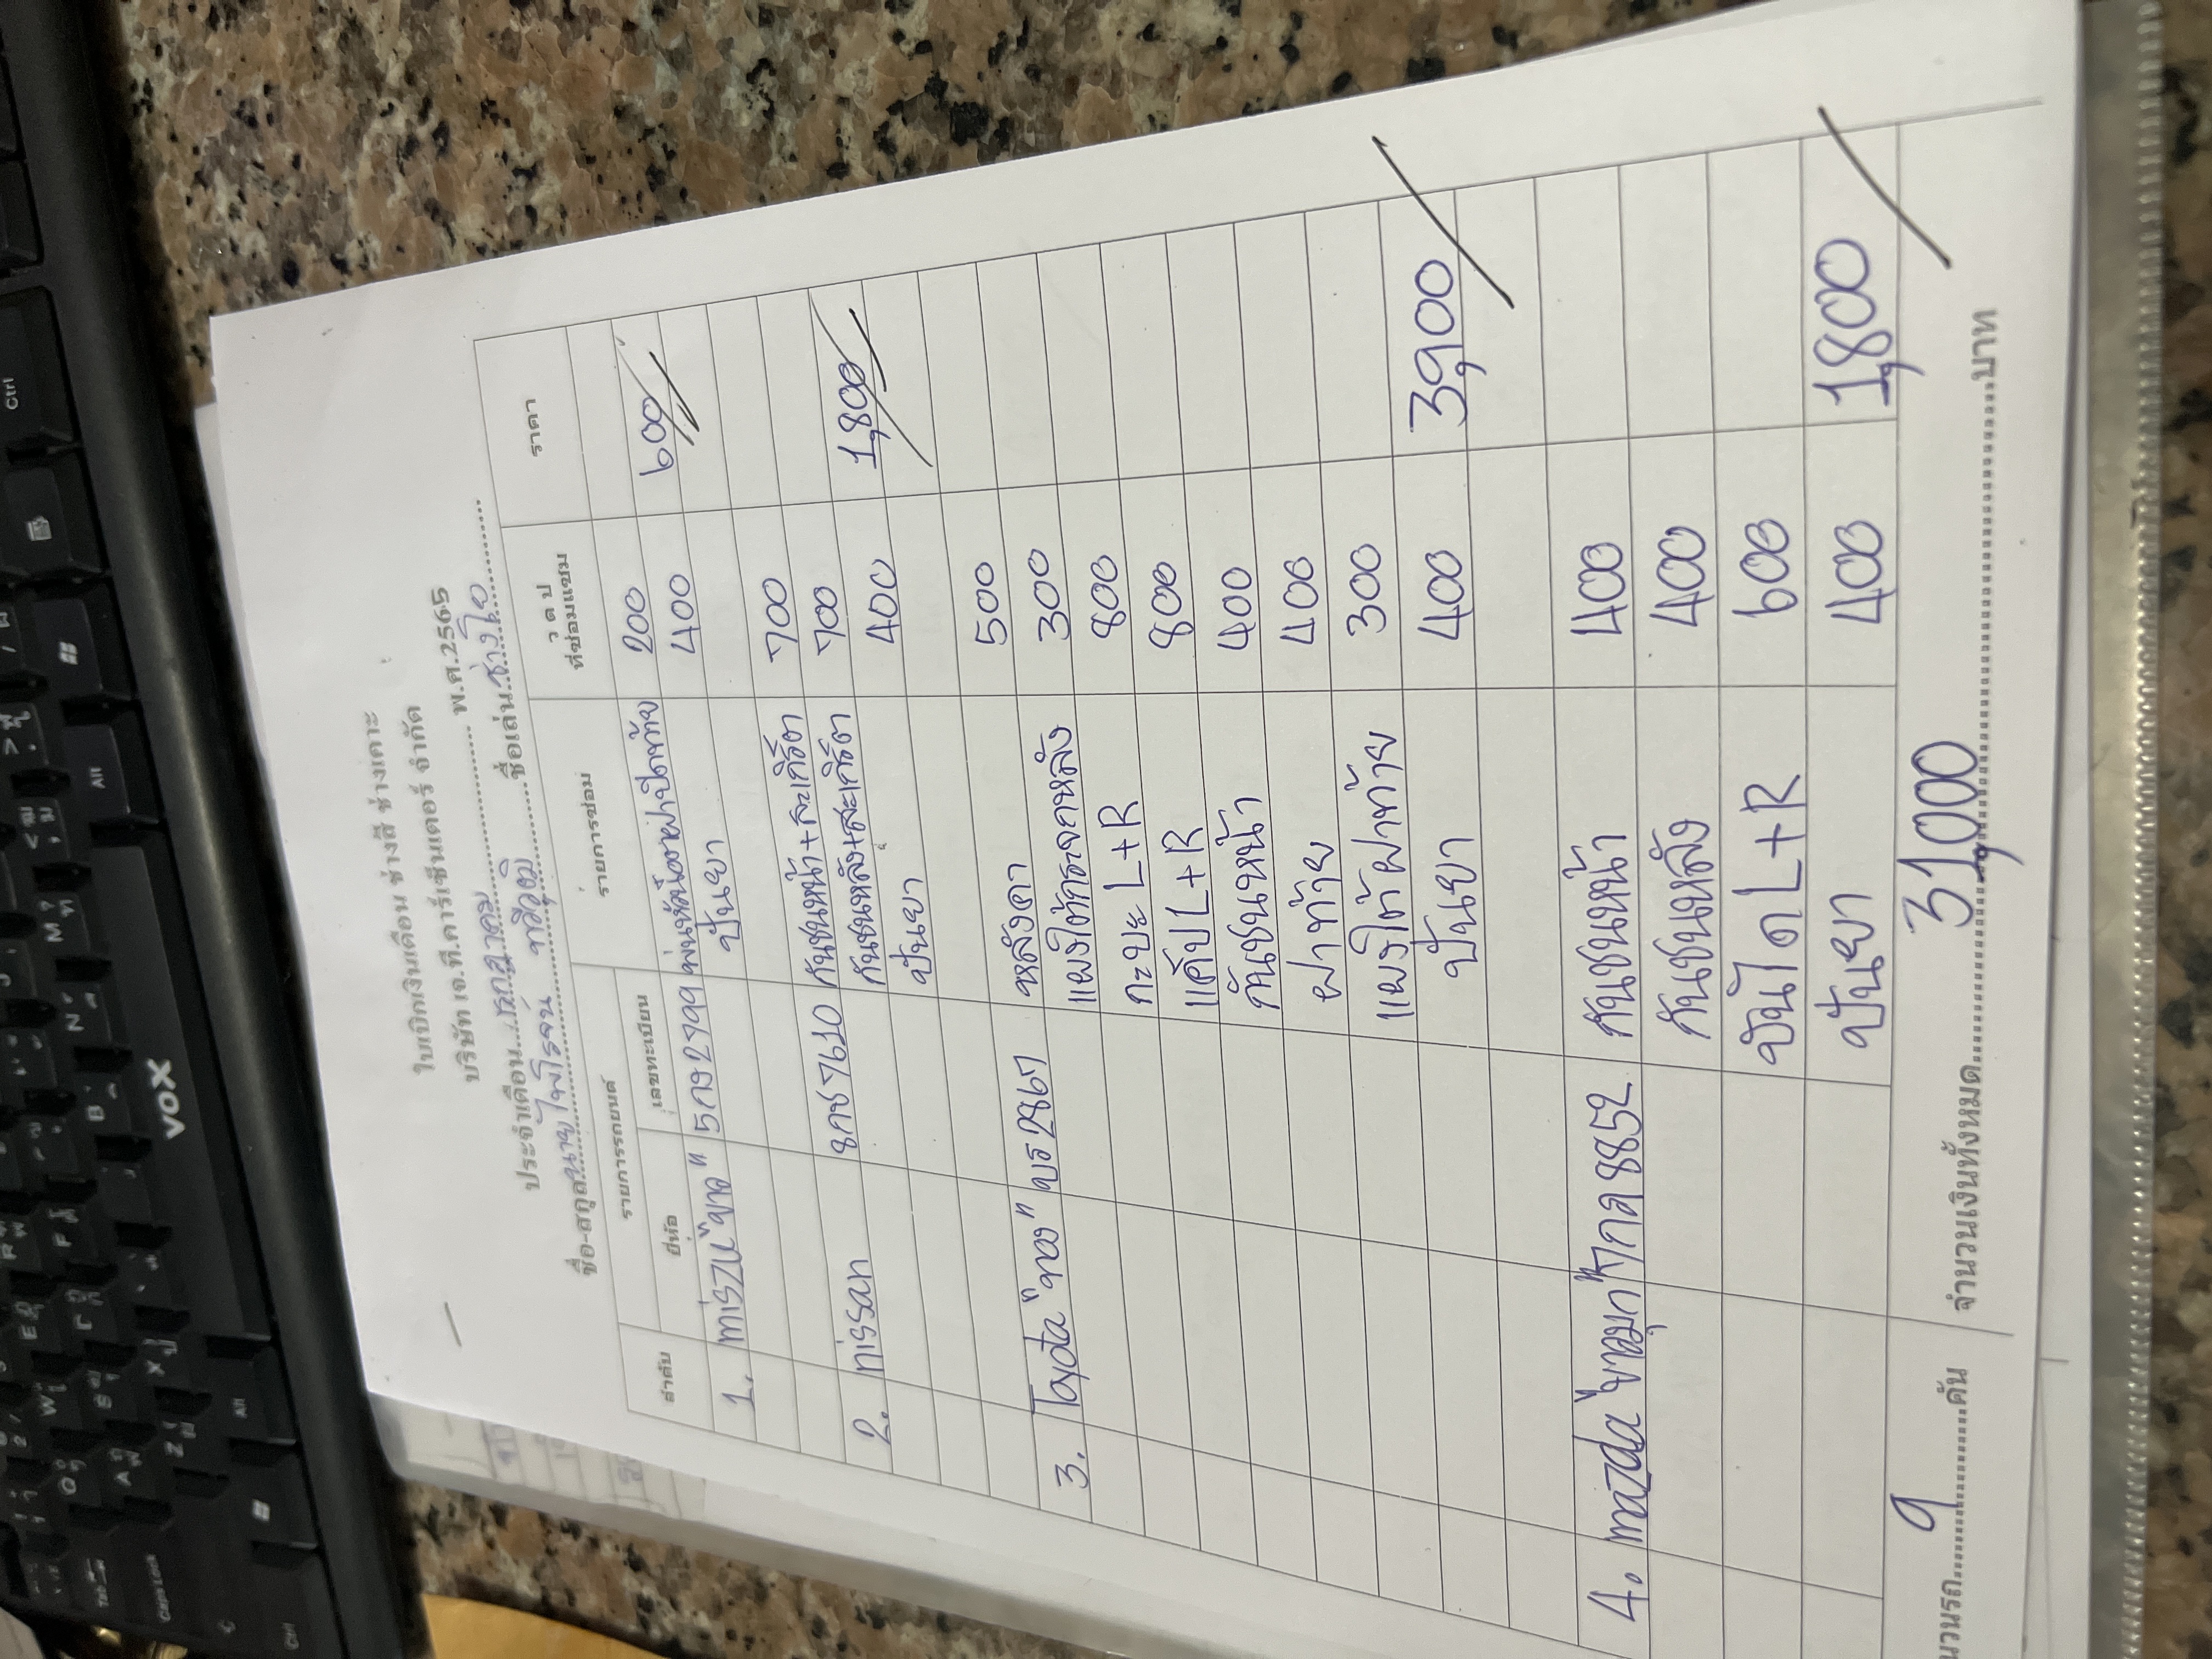 ใบเบิกเงินเดือน ช่างสี ช่างเคาะ
บริษัท เจ.ที.คาร์เซ็นเตอร์ จำกัด
ประจำเดือน...กรกฎาคม... พ.ศ.2565
ชื่อ-สกุล...นายไพโรจน์ ... ชื่อเล่น...ช่างโอ...
ลำดับ รายการรถยนต์ รายการซ่อม ว ด ป ที่ซ่อมแซม ราคา
ยี่ห้อ เลขทะเบียน
1. miszu "ขาว" 5กง2799 พ่นหัวน็อตฝาปิดท้าย 200
ปั่นยา 400 600
กันชนหน้า+สะเกิร์ต 700
2. nissan 8กช7610 กันชนหลัง+สะเกิร์ต 700 1,800
ปั่นยา 400
หลังคา 500
3. Toyota "ทอง" บร2867 แผงใต้กระจกหลัง 300
กะบะ L+R 800
แค๊ป L+R 800
กันชนหน้า 400
ฝาท้าย 400
แผงใต้ฝาท้าย 300
ปั่นยา 400 3,900
4. mazda "ขาวมุก" 7กล8852 กันชนหน้า 400
กันชนหลัง 400
บันได L+R 600
ปั่นยา 400 1,800
นวนรถ...9...คัน จำนวนเงินทั้งหมด...31,000...บาท
VOX
Ctrl
Alt
Tab
Caps Lock
Ctrl
Alt